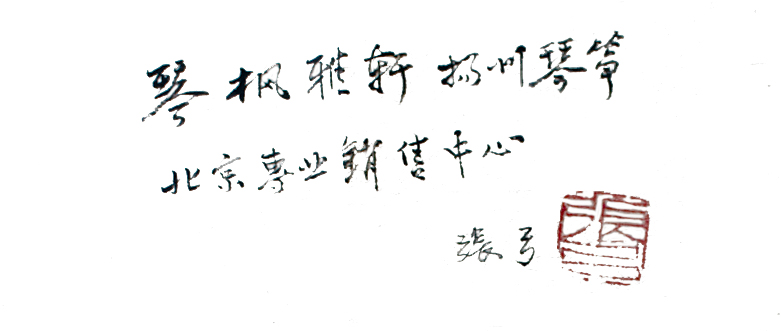 琴枫雅轩 扬州琴筝
北京专业銷售中心
張弓